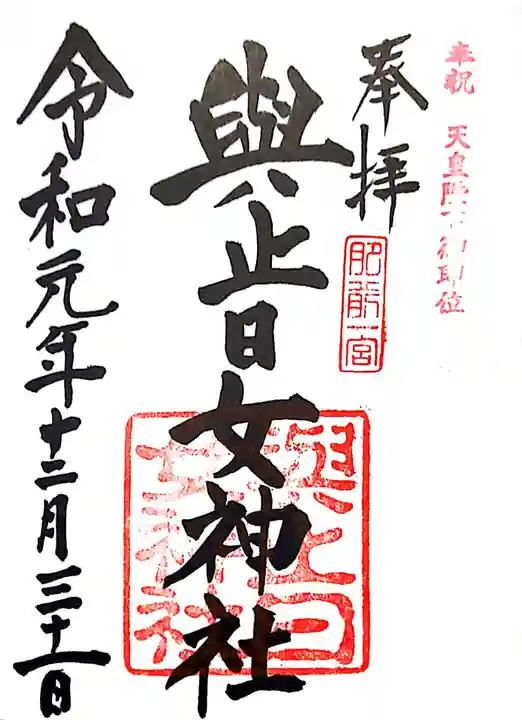 奉祝 天皇陛下御即位
奉拝
肥前一宮
與止日女神社
與止日女神社
令和元年十二月三十一日